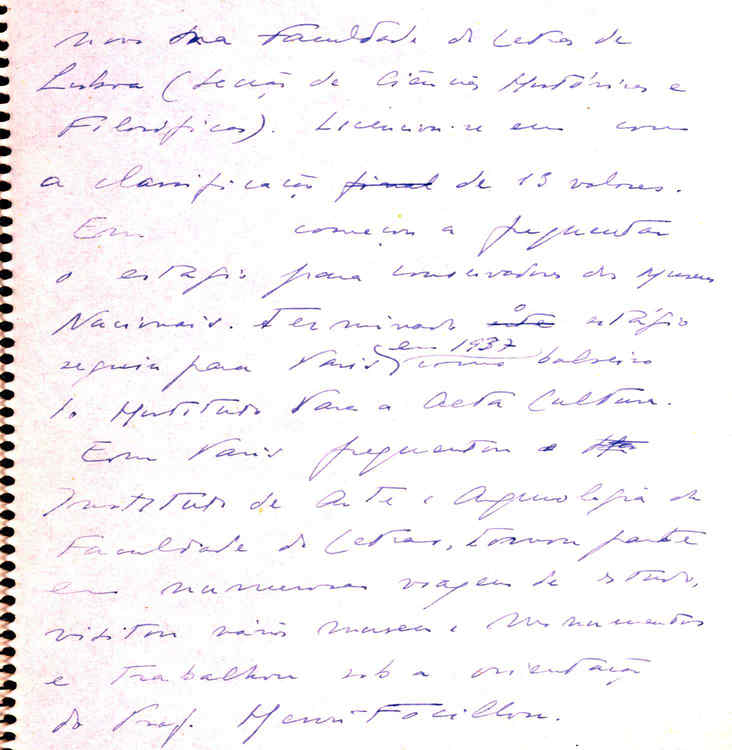 novo na Faculdade de Letras de
Lisboa (Secção de Ciências Históricas e
Filosóficas). Licenciou-se em com
a classificação final de 13 valores.
Em começou a frequentar
o estágio para conservadores dos Museus
Nacionais. Terminado o estágio
seguiu para Paris em 1937 como bolseiro
do Instituto Para a Alta Cultura.
Em Paris frequentou o
Instituto de Arte e Arqueologia da
Faculdade de Letras, tomou parte
em numerosas viagens de estudo,
visitou vários museus e monumentos
e trabalhou sob a orientação
do Prof. Henri Focillon.